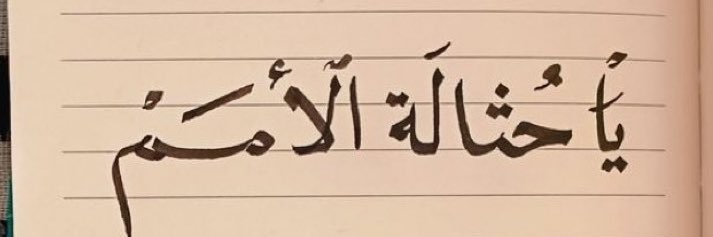 يَا حُثَالَةَ الْأُمَمْ